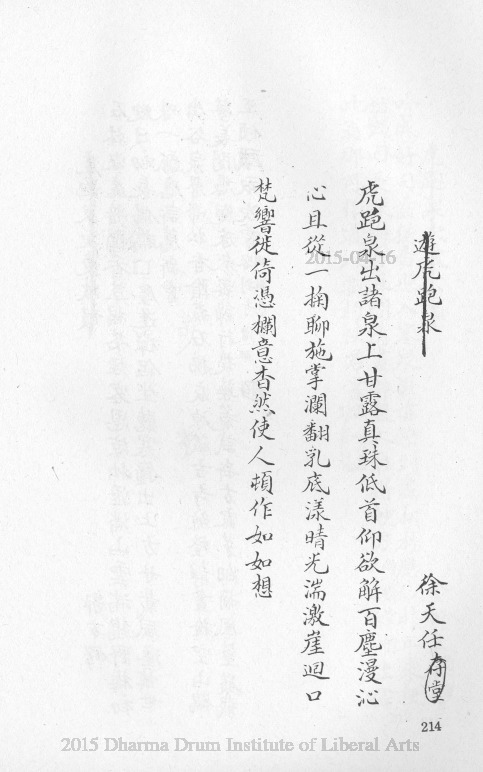 遊虎跑泉
徐天任 存堂
虎跑泉出諸泉上甘露真珠低首仰欲解百塵漫沁
心且從一掬聊施掌瀾翻乳底漾晴光湍激崖迴口
梵響徙倚憑欄意杳然使人頓作如如想
2015-04-16
214
2015 Dharma Drum Institute of Liberal Arts